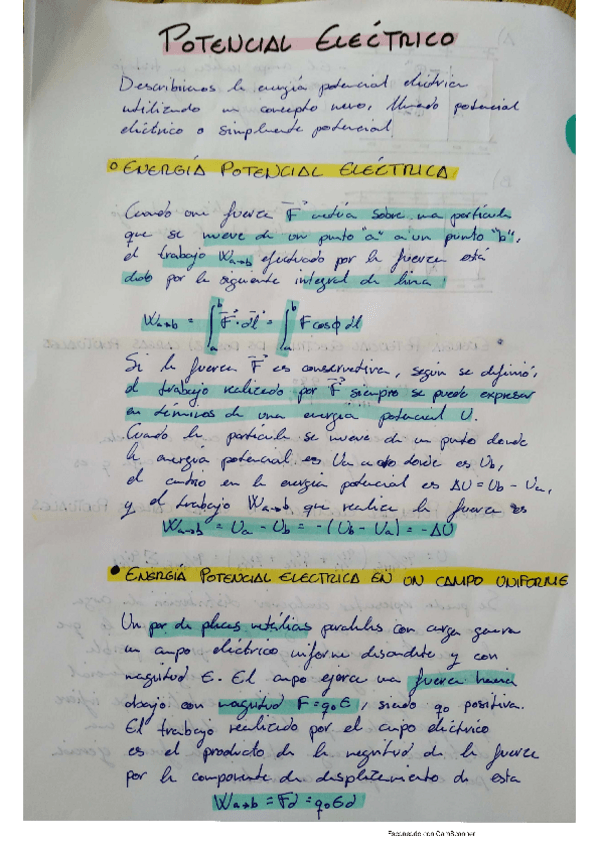 POTENCIAL ELÉCTRICO
Describimos la energía potencial eléctrica
utilizando un concepto nuevo, llamado potencial
eléctrico o simplemente potencial
ENERGÍA POTENCIAL ELÉCTRICA
Cuando una fuerza F actúa sobre una partícula
que se mueve de un punto "a" a un punto "b",
el trabajo Wa→b efectuado por la fuerza está
dado por la siguiente integral de línea:
Wa→b = ∫ₐᵇ F · dl = ∫ₐᵇ F cosϕ dl
Si la fuerza F es conservativa, según se definió,
el trabajo realizado por F siempre se puede expresar
en términos de una energía potencial U.
Cuando la partícula se mueve de un punto donde
la energía potencial es Ua a otro donde es Ub,
el cambio en la energía potencial es ΔU = Ub - Ua,
y el trabajo Wa→b que realiza la fuerza es
Wa→b = Ua - Ub = -(Ub - Ua) = -ΔU
ENERGÍA POTENCIAL ELECTRICA EN UN CAMPO UNIFORME
Un par de placas metálicas paralelas con carga genera
un campo eléctrico uniforme descendente y con
magnitud E. El campo ejerce una fuerza hacia
abajo con magnitud F = q₀E, siendo q₀ positiva.
El trabajo realizado por el campo eléctrico
es el producto de la magnitud de la fuerza
por la componente de desplazamiento de esta
Wa→b = Fd = q₀Ed
Escaneado con CamScanner